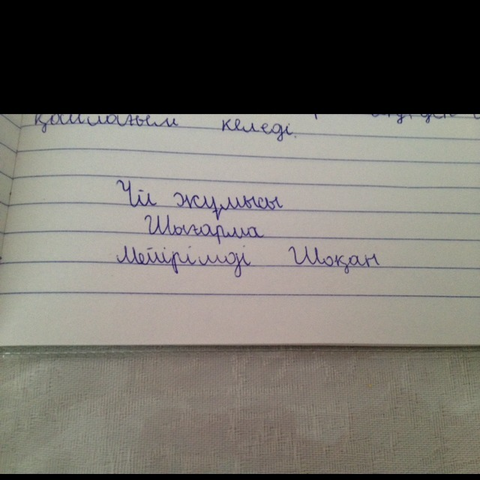 келеді.
Үй жұмысы
Шығарма
Мейірімді Шоқан